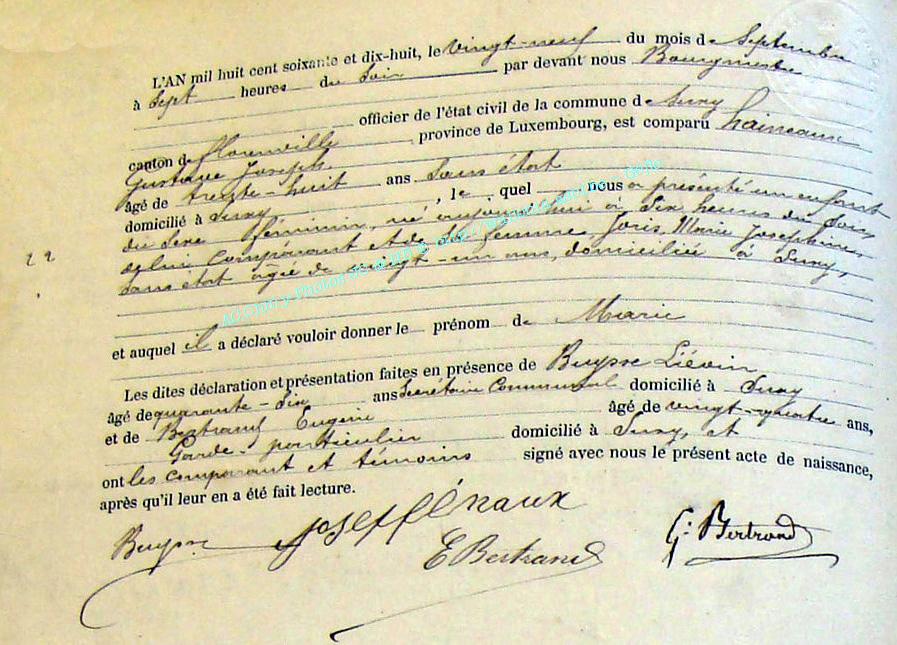 L'AN mil huit cent soixante et dix-huit, le vingt-neuf du mois de Septembre
à Sept heures du Soir par devant nous Bourgmestre
officier de l'état civil de la commune d Suxy
canton de florenville province de Luxembourg, est comparu haineaux
Gustave Joseph
âgé de trente-huit ans Sans état
domicilié à Suxy, le quel nous a présenté un enfant
du Sexe féminin, né aujourd'hui à Six heures du Soir
de lui Comparant et de Sa femme, Joris, Marie Josephine,
sans état agée de vingt-un ans, domiciliée à Suxy,
22
et auquel il a déclaré vouloir donner le prénom de Marie
Les dites déclaration et présentation faites en présence de Buysse Liévin
âgé de quarante-Six ans Secrétaire Communal domicilié à Suxy
et de Bertrand Eugène âgé de vingt-quatre ans,
Garde-particulier domicilié à Suxy, et
ont les comparant et témoins signé avec nous le présent acte de naissance,
après qu'il leur en a été fait lecture.
Buysse
E Bertrand
G: Bertrand